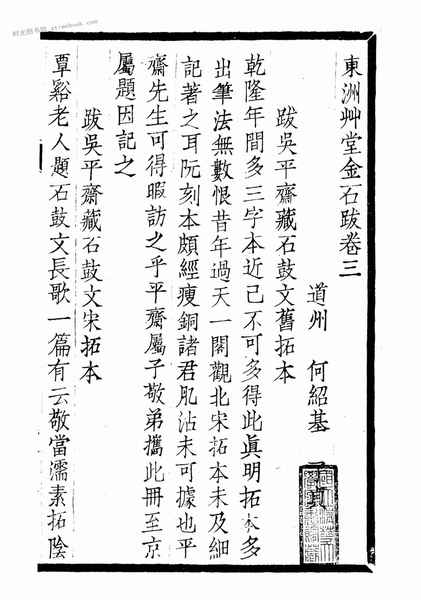 東洲艸堂金石跋卷三
道州 何紹基 子貞
跋吳平齋藏石鼓文舊拓本
乾隆年間多三字本近已不可多得此眞明拓本多
出筆法無數恨昔年過天一閣觀北宋拓本未及細
記著之耳阮刻本頗經瘦銅諸君肊沾未可據也平
齋先生可得暇訪之乎平齋屬子敬弟攜此冊至京
屬題因記之
跋吳平齋藏石鼓文宋拓本
覃谿老人題石鼓文長歌一篇有云敬當濡素拓陰